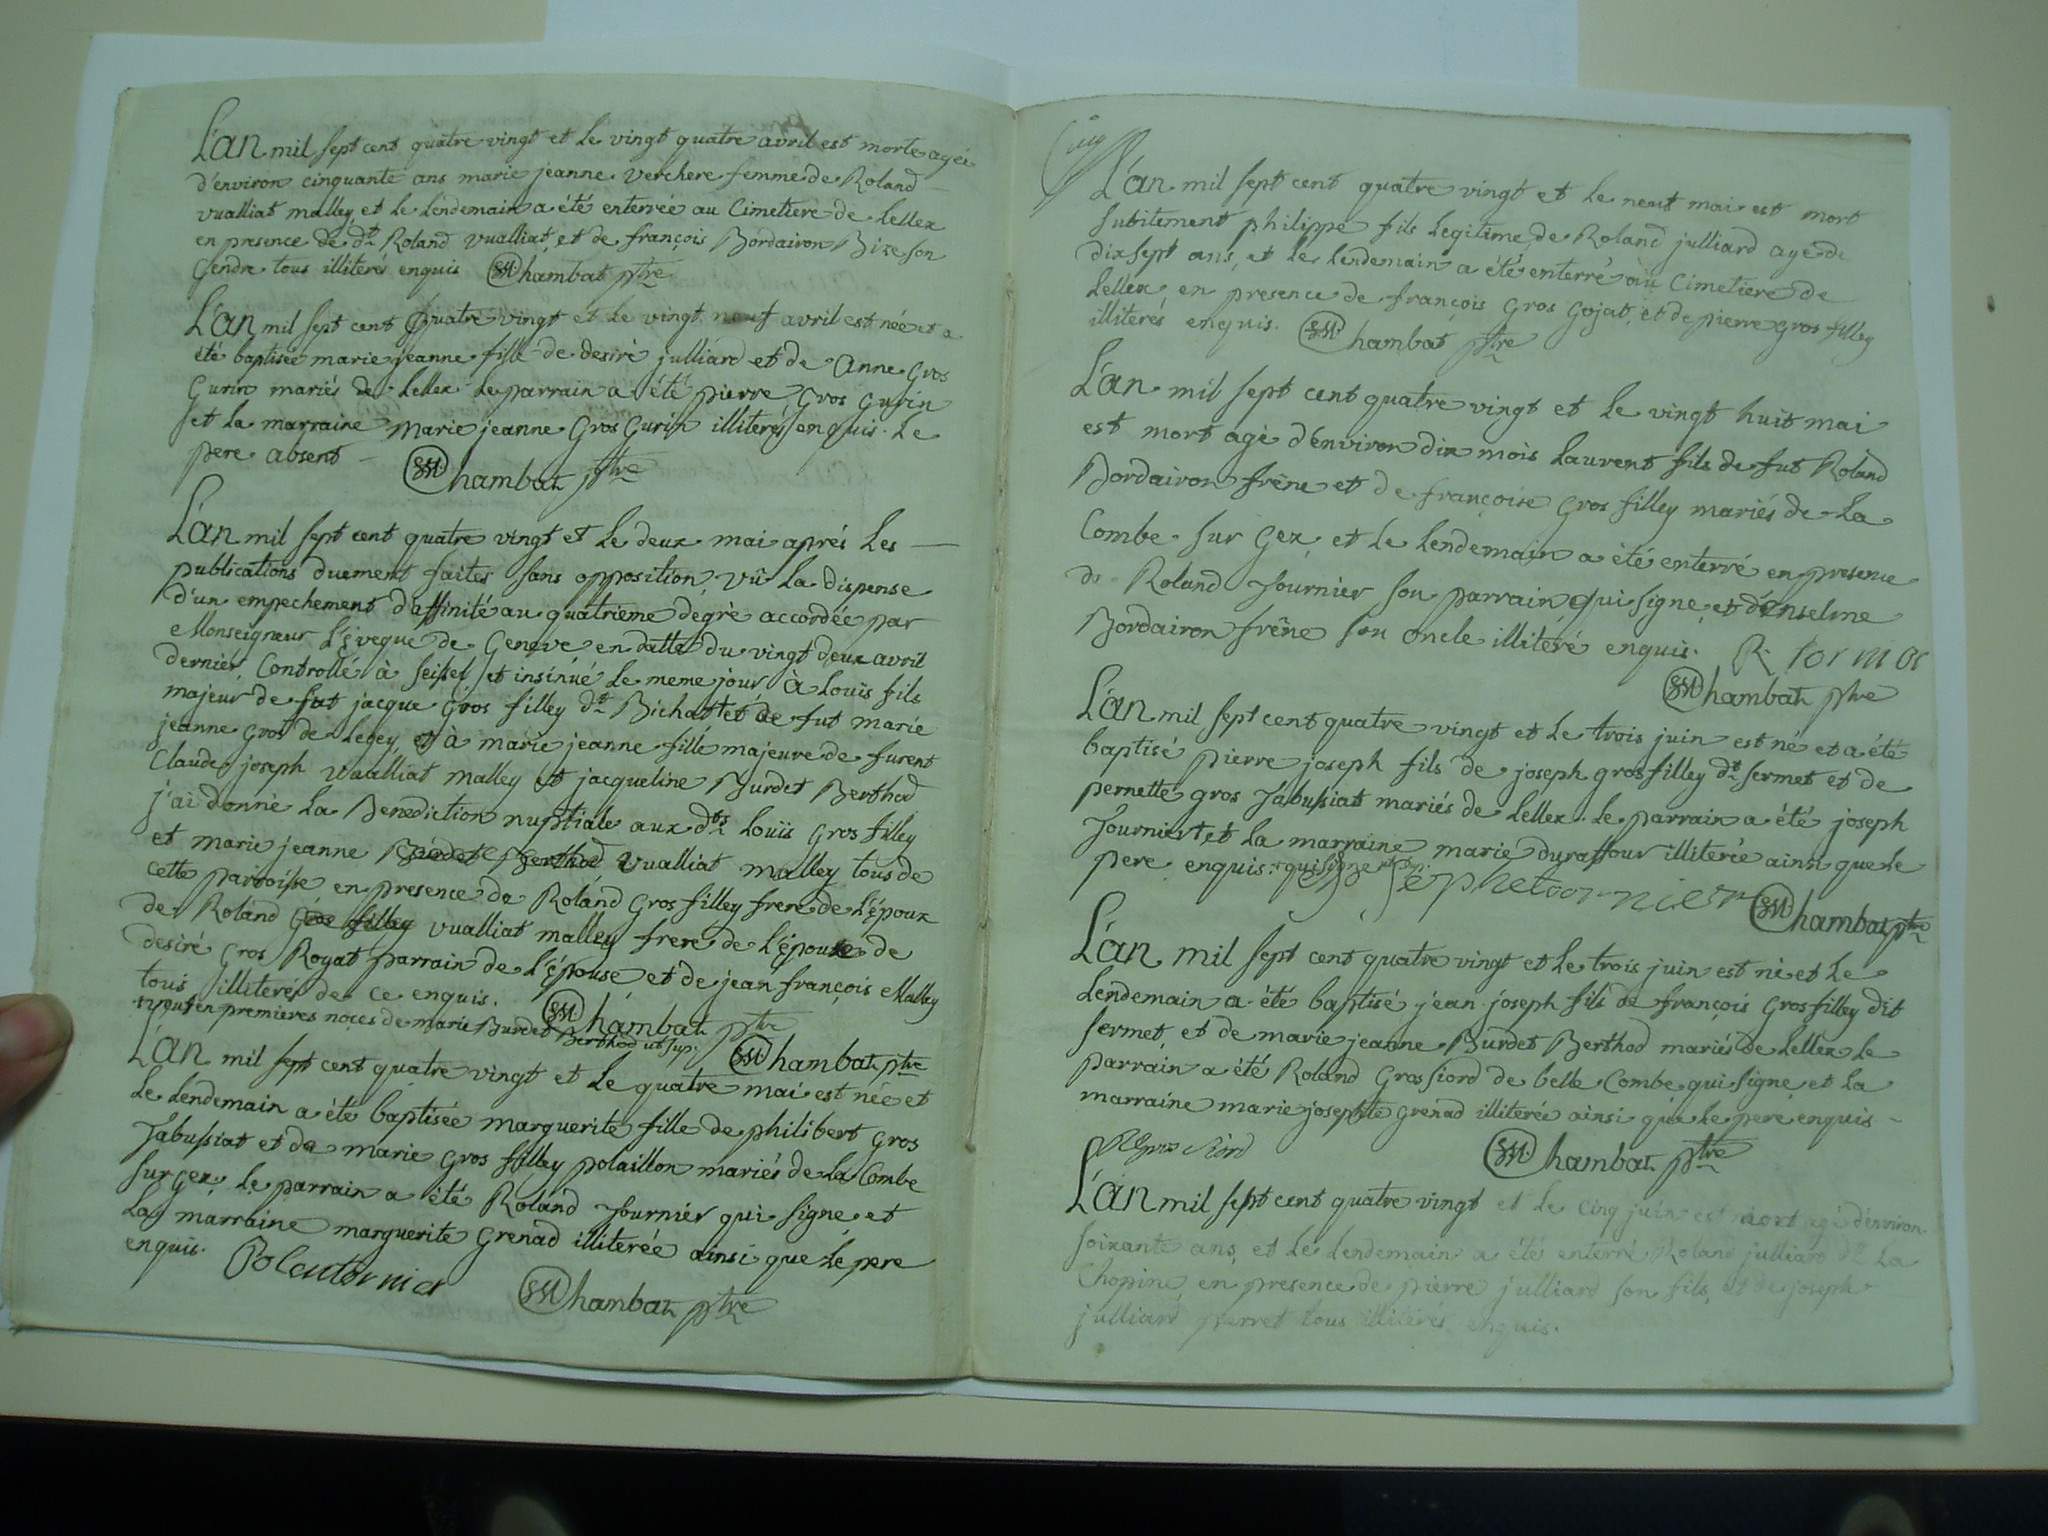 L'an mil sept cent quatre vingt et le vingt quatre avril est morte agée
d'environ cinquante ans marie jeanne verchere femme de Roland
vualliat malley, et le lendemain a été enterrée au Cimetiere de Lellex
en presence de dt Roland vualliat, et de françois Bordairon Bize son
gendre tous illiterés enquis Chambat ptre
L'an mil sept cent quatre vingt et le vingt neuf avril est née et a
été baptisée marie jeanne fille de desiré julliard et de Anne Gros
Gurin mariés de Lellex le parrain a été pierre Gros Gurin
et la marraine Marie jeanne Gros Gurin illiterés enquis. Le
pere absent Chambat ptre
L'an mil sept cent quatre vingt et le deux mai aprés les
publications duement faites sans opposition, vû la dispense
d'un empechement d'affinité au quatrieme degré accordée par
Monseigneur l'Eveque de Geneve en datte du vingt deux avril
dernier, Controllé à Seissel, et insinué le meme jour à Louis fils
majeur de fut jacque Gros filley dt Bichattet de fut marie
jeanne Gros de Legey, et à marie jeanne fille majeure de furent
Claude joseph vualliat malley et jacqueline Burdet Berthod
j'ai donné la Benediction nuptiale aux dts Louis Gros filley
et marie jeanne Burdet Berthod vualliat malley tous de
cette parroisse en presence de Roland Gros filley frere de l'époux
de Roland Gros filley vualliat malley frere de l'épouse de
desiré Gros Royat parrain de l'épouse et de jean françois Malley
tous illiterés de ce enquis. Chambat ptre
en premieres noces de marie Burdet Berthod ut sup. Chambat ptre
L'an mil sept cent quatre vingt et le quatre mai est née et
le lendemain a été baptisée marguerite fille de philibert Gros
Jabussiat et de marie Gros filley polaillon mariés de la Combe
sur Gex, le parrain a été Roland Journier qui signe et
la marraine marguerite Grenad illiterée ainsi que le pere
enquis. Chambat ptre
Cinq
L'an mil sept cent quatre vingt et le neuf mai est mort
subitement philippe fils legitime de Roland julliard agé de
dix sept ans, et le lendemain a été enterré au Cimetiere de
Lellex, en presence de françois Gros Gojat, et de pierre Gros filley
illiterés enquis. Chambat ptre
L'an mil sept cent quatre vingt et le vingt huit mai
est mort agé d'environ dix mois Laurent fils de fut Roland
Bordairon frêne et de françoise Gros filley mariés de la
Combe sur Gex, et le lendemain a été enterré en presence
de Roland Journier son parrain qui signe, et d'anselme
Bordairon frêne son oncle illitéré enquis.
Chambat ptre
L'an mil sept cent quatre vingt et le trois juin est né et a été
baptisé pierre joseph fils de joseph gros filley dt sermet et de
pernette gros Jabussiat mariés de Lellex. Le parrain a été joseph
Journier et la marraine marie duraffour illiterée ainsi que le
pere enquis. qui signe
Chambat ptre
L'an mil sept cent quatre vingt et le trois juin est né et le
lendemain a été baptisé jean joseph fils de françois Gros filley dit
sermet, et de marie jeanne Burdet Berthod mariés de Lellex le
parrain a été Roland Gros fiord de belle Combe qui signe et la
marraine marie josephte grenad illiterée ainsi que le pere enquis
Chambat ptre
L'an mil sept cent quatre vingt et le cinq juin est mort agé d'environ
soixante ans, et le lendemain a été enterré Roland julliard de la
Chopine, en presence de pierre julliard son fils, et de joseph
julliard perret tous illiterés enquis.